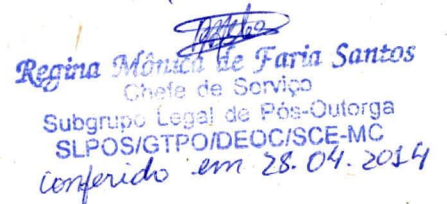 Regina Mônica de Faria Santos
Chefe de Serviço
Subgrupo Legal de Pós-Outorga
SLPOS/GTPO/DEOC/SCE-MC
conferido em 28.04.2014